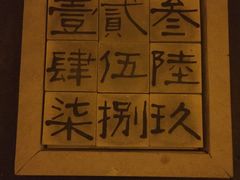 壹貳叁
肆伍陸
柒捌玖